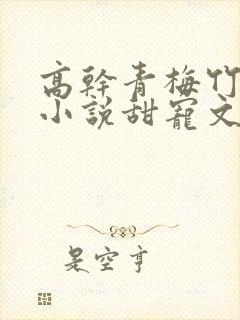 高幹青梅竹
小説甜寵文
是空亨